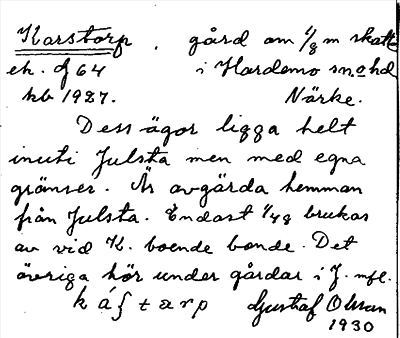 Karstorp. gård om 1/8 m skatte
ek. J 64 i Hardemo sn. o hd
kb 1927. Närke.
Dess ägor ligga helt
inuti Julsta men med egna
gränser. Är avgärda hemman
från Julsta. Endast 1/48 brukas
av vid K. boende bonde. Det
övriga hör under gårdar i J. mfl.
Gustaf Olsson
1930